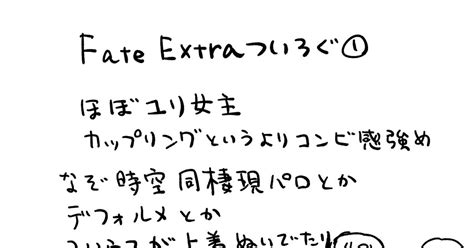 Fate Extraついろぐ①
ほぼユリ女主
カップリングというよりコンビ感強め
なぞ時空同棲現パロとか
デフォルメとか
が上着ぬいでたり